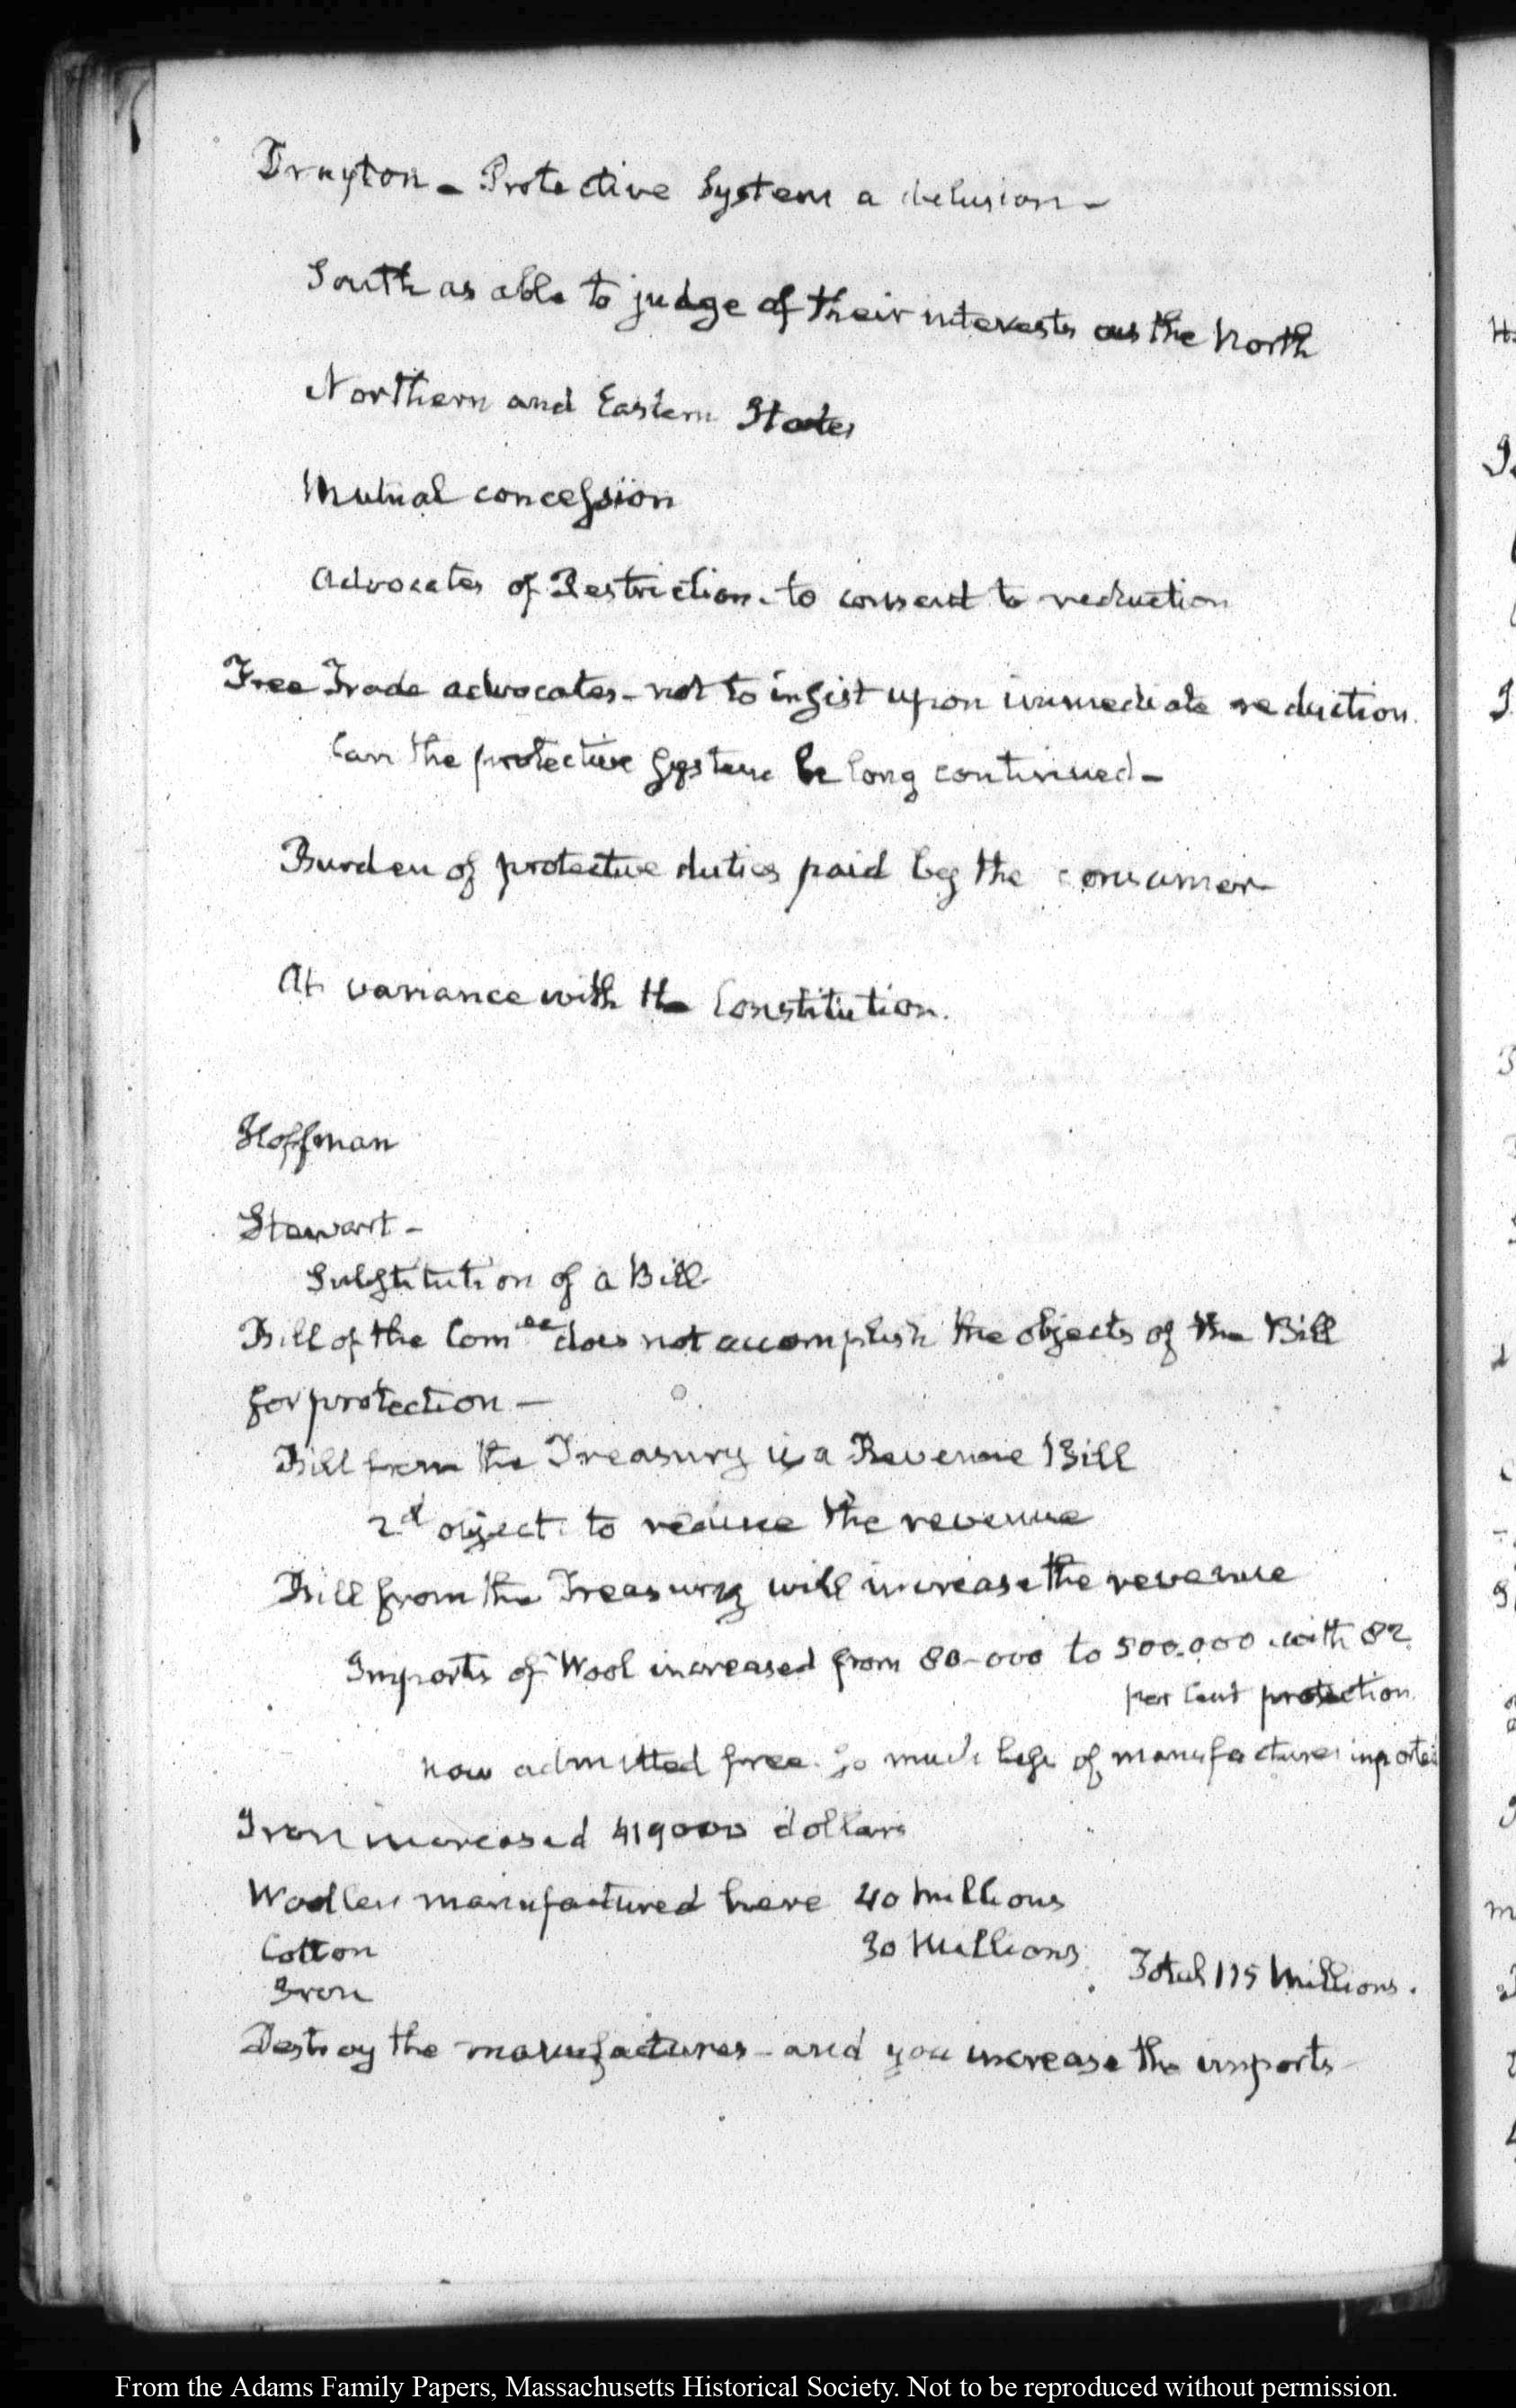 Drayton – Protective System a delusion –
South as able to judge of their interests as the North
Northern and Eastern States
Mutual concession
Advocates of Restriction. to consent to reduction
Free Trade advocates – not to insist upon immediate reduction.
Can the protective System be long continued –
Burden of protective duties paid by the consumer
At variance with the Constitution.
Hoffman
Stewart –
Substitution of a Bill
Bill of the Comee does not accomplish the objects of the Bill
for protection –
Bill from the Treasury is a Revenue Bill
2d object to reduce the revenue
Bill from the Treasury will increase the revenue
Imports of Wool increased from 80–000 to 500.000 with 82
per Cent protection.
now admitted free. so much less of manufactures imported
Iron increased 419000 dollars
Woollen manufactured here 40 Millions
Cotton 30 Millions. Total 115 Millions.
Iron
Destroy the manufactures – and you increase the imports
From the Adams Family Papers, Massachusetts Historical Society. Not to be reproduced without permission.